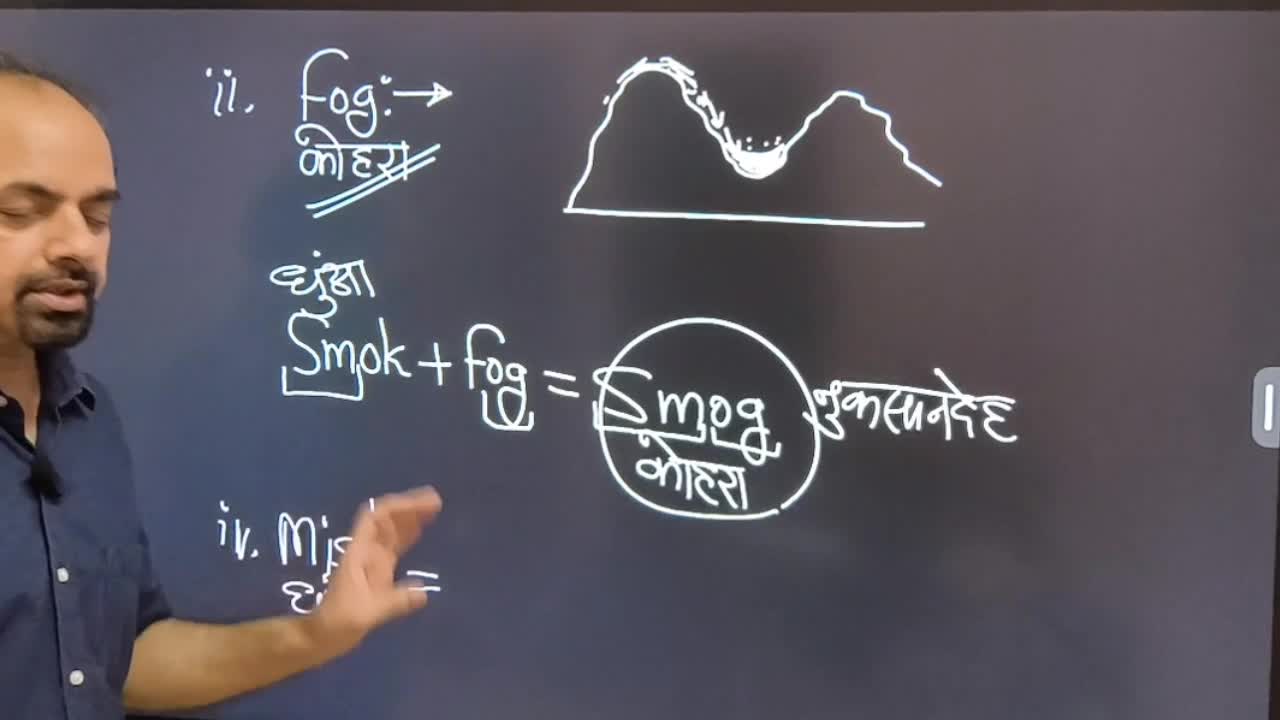 ii. Fog:→
कोहरा
धुंआ
Smok + Fog = Smog नुकसानदेह
कोहरा
iv.